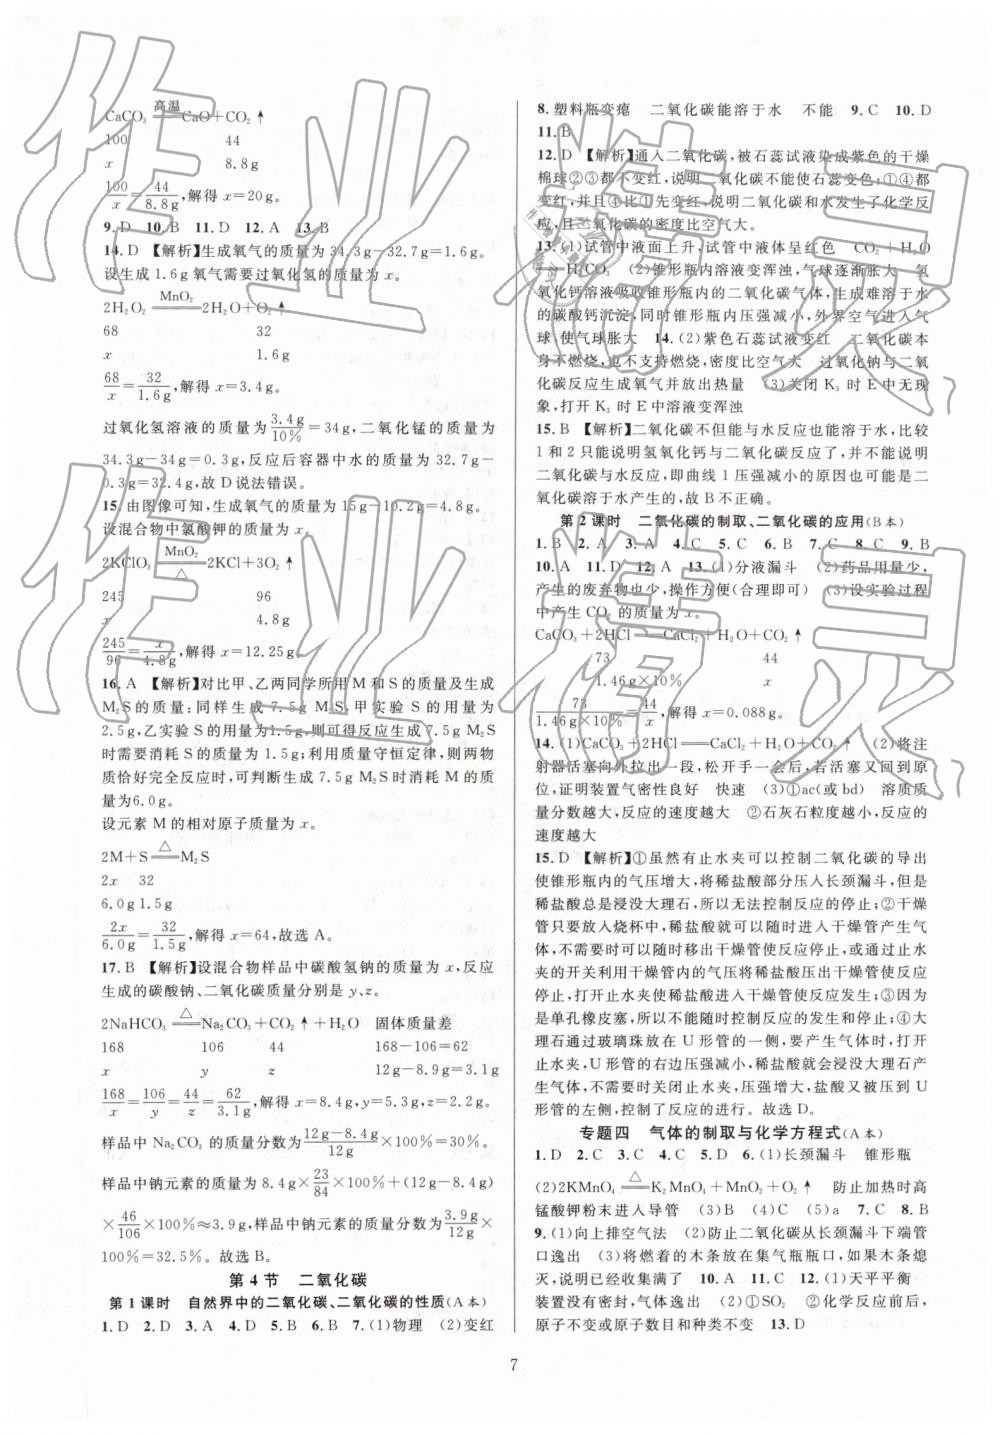 高温
CaCO₃═══CaO+CO₂↑
100 44
x 8.8g
100/x=44/8.8g,解得 x=20g。
9. D 10. B 11. D 12. A 13. B
14. D 【解析】生成氧气的质量为 34.3g-32.7g=1.6g。
设生成 1.6g 氧气需要过氧化氢的质量为 x。
MnO₂
2H₂O₂═══2H₂O+O₂↑
68 32
x 1.6g
68/x=32/1.6g,解得 x=3.4g。
过氧化氢溶液的质量为 3.4g/10%=34g,二氧化锰的质量为
34.3g-34g=0.3g,反应后容器中水的质量为 32.7g-
0.3g=32.4g,故 D 说法错误。
15. 由图像可知,生成氧气的质量为 15g-10.2g=4.8g。
设混合物中氯酸钾的质量为 x。
MnO₂
2KClO₃═══2KCl+3O₂↑
△
245 96
x 4.8g
245/96=x/4.8g,解得 x=12.25g。
16. A 【解析】对比甲、乙两同学所用 M 和 S 的质量及生成
M₂S 的质量:同样生成 7.5g M₂S,甲实验 S 的用量为
2.5g,乙实验 S 的用量为1.5g,则可得反应生成 7.5g M₂S
时需要消耗 S 的质量为 1.5g;利用质量守恒定律,则两物
质恰好完全反应时,可判断生成 7.5g M₂S 时消耗 M 的质
量为6.0g。
设元素 M 的相对原子质量为 x。
△
2M+S═══M₂S
2x 32
6.0g 1.5g
2x/6.0g=32/1.5g,解得 x=64,故选 A。
17. B 【解析】设混合物样品中碳酸氢钠的质量为 x,反应
生成的碳酸钠、二氧化碳质量分别是 y、z。
△
2NaHCO₃═══Na₂CO₃+CO₂↑+H₂O 固体质量差
168 106 44 168-106=62
x y z 12g-8.9g=3.1g
168/x=106/y=44/z=62/3.1g,解得 x=8.4g,y=5.3g,z=2.2g。
样品中 Na₂CO₃ 的质量分数为 (12g-8.4g)/12g×100%=30%。
样品中钠元素的质量为 8.4g×23/84×100%+(12g-8.4g)
×46/106×100%≈3.9g,样品中钠元素的质量分数为 3.9g/12g
×100%=32.5%。故选 B。
第 4 节 二氧化碳
第 1 课时 自然界中的二氧化碳、二氧化碳的性质(A本)
1. D 2. D 3. A 4. D 5. B 6. B 7. (1)物理 (2)变红
8. 塑料瓶变瘪 二氧化碳能溶于水 不能 9. C 10. D
11. B
12. D 【解析】通入二氧化碳,被石蕊试液染成紫色的干燥
棉球②③都不变红,说明二氧化碳不能使石蕊变色;①④都
变红,并且④比①先变红,说明二氧化碳和水发生了化学反
应,且二氧化碳的密度比空气大。
13. (1)试管中液面上升,试管中液体呈红色 CO₂+H₂O
═══H₂CO₃ (2)锥形瓶内溶液变浑浊,气球逐渐胀大 氢
氧化钙溶液吸收锥形瓶内的二氧化碳气体,生成难溶于水
的碳酸钙沉淀,同时锥形瓶内压强减小,外界空气进入气
球,使气球胀大 14. (2)紫色石蕊试液变红 二氧化碳本
身不燃烧,也不支持燃烧,密度比空气大 过氧化钠与二氧
化碳反应生成氧气并放出热量 (3)关闭 K₃ 时 E 中无现
象,打开 K₃ 时 E 中溶液变浑浊
15. B 【解析】二氧化碳不但能与水反应也能溶于水,比较
1 和 2 只能说明氢氧化钙与二氧化碳反应了,并不能说明
二氧化碳与水反应,即曲线 1 压强减小的原因也可能是二
氧化碳溶于水产生的,故 B 不正确。
第 2 课时 二氧化碳的制取、二氧化碳的应用(B本)
1. B 2. A 3. A 4. C 5. C 6. B 7. C 8. C 9. B
10. A 11. D 12. A 13. (1)分液漏斗 (2)药品用量少,
产生的废弃物也少,操作方便(合理即可) (3)设实验过程
中产生 CO₂ 的质量为 x。
CaCO₃+2HCl═══CaCl₂+H₂O+CO₂↑
73 44
1.46g×10% x
73/1.46g×10%=44/x,解得 x=0.088g。
14. (1)CaCO₃+2HCl═══CaCl₂+H₂O+CO₂↑ (2)将注
射器活塞向外拉出一段,松开手一会儿后,若活塞又回到原
位,证明装置气密性良好 快速 (3)①ac(或 bd) 溶质质
量分数越大,反应的速度越大 ②石灰石粒度越小,反应的
速度越大
15. D 【解析】①虽然有止水夹可以控制二氧化碳的导出
使锥形瓶内的气压增大,将稀盐酸部分压入长颈漏斗,但是
稀盐酸总是浸没大理石,所以无法控制反应的停止;②干燥
管只要放入烧杯中,稀盐酸就可以随时进入干燥管产生气
体,不需要时可以随时移出干燥管使反应停止,或通过止水
夹的开关利用干燥管内的气压将稀盐酸压出干燥管使反应
停止,打开止水夹使稀盐酸进入干燥管使反应发生;③因为
是单孔橡皮塞,所以不能随时控制反应的发生和停止;④大
理石通过玻璃珠放在 U 形管的一侧,要发生反应时,打开
止水夹,U 形管的右边压强减小,稀盐酸就会浸没大理石产
生气体,不需要时关闭止水夹,压强增大,盐酸又被压到 U
形管的左侧,控制了反应的进行。故选 D。
专题四 气体的制取与化学方程式(A本)
1. D 2. C 3. C 4. C 5. D 6. (1)长颈漏斗 锥形瓶
△
(2)2KMnO₄═══K₂MnO₄+MnO₂+O₂↑ 防止加热时高
锰酸钾粉末进入导管 (3)B (4)C (5)a 7. C 8. B
9. (1)向上排空气法 (2)防止二氧化碳从长颈漏斗下端管
口逸出 (3)将燃着的木条放在集气瓶瓶口,如果木条熄
灭,说明已经收集满了 10. A 11. C 12. (1)天平平衡
装置没有密封,气体逸出 (2)①SO₂ ②化学反应前后,
原子不变或原子数目和种类不变 13. D
7
作业精灵
作业精灵